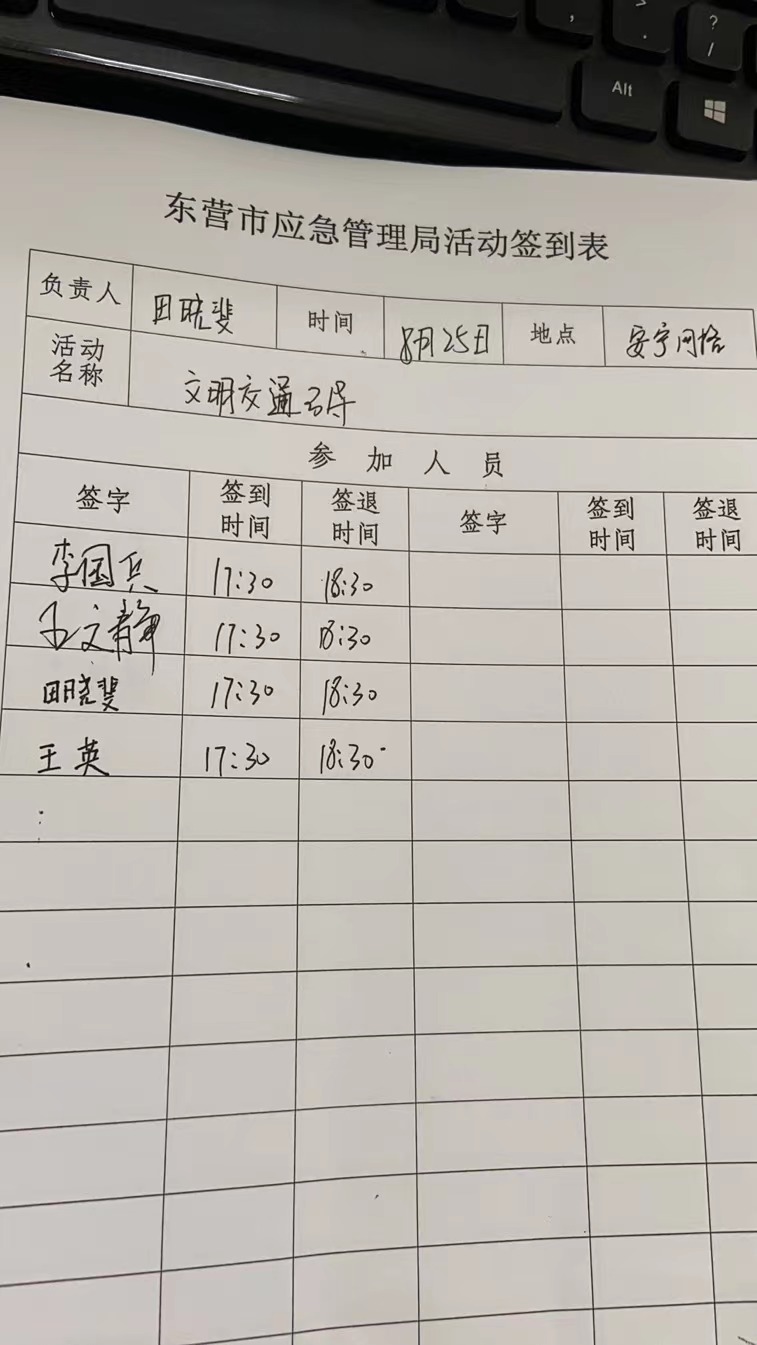 Alt
?
/
东营市应急管理局活动签到表
负责人 田晓斐 时间 8月25日 地点 安宁网格
活动名称 文明交通引导
参加人员
签字 签到时间 签退时间 签字 签到时间 签退时间
李国兵 17:30 18:30
王文静 17:30 18:30
田晓斐 17:30 18:30
王英 17:30 18:30